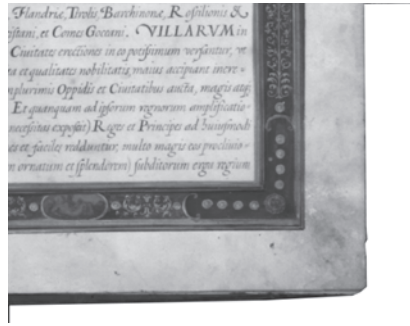 Flandriæ, Tirolis, Barchinonæ, Rosilionis &
istani, et Comes Goceani. VILLARVM in
Ciuitates erectiones in eo potissimum versantur, vt
ta et qualitates nobilitatis, maius accipiant incre-
mplurimis Oppidis et Ciuitatibus aucta, magis atq;
Et quanquam ad ipsorum regnorum amplificatio-
necessitas exposcit) Reges et Principes ad huiusmodi
es et faciles redduntur, multo magis eos procliuio-
m ornatum et splendorem) subditorum erga regium